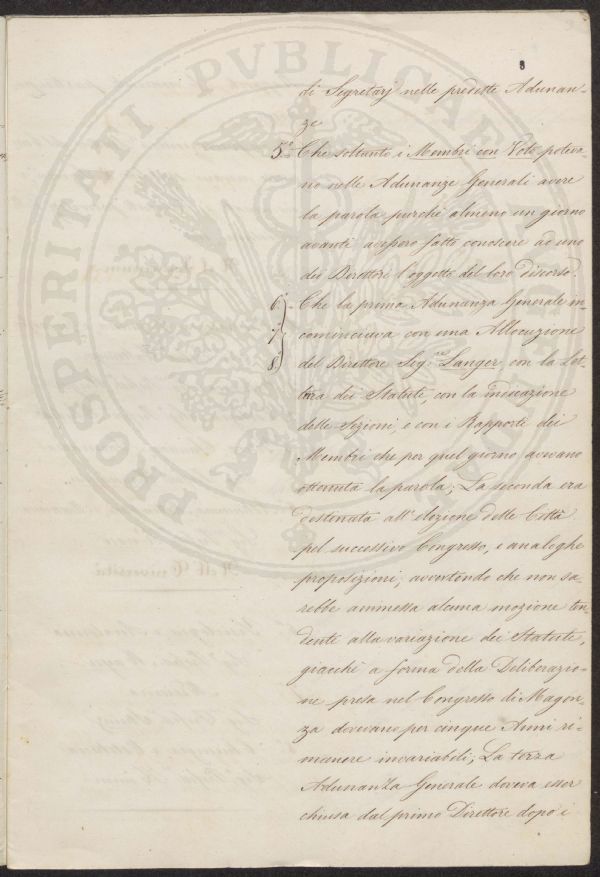 8
di Segretarj nelle predette Adunan-
ze
5.° Che soltanto i Membri con Voto poteva-
no nelle Adunanze Generali avere
la parola purchè almeno un giorno
avanti avessero fatto conoscere ad uno
dei Direttori l'oggetto del loro discorso.
6. Che la prima Adunanza Generale in-
7. cominciava con una Allocuzione
8. del Direttore Sig.re Langer, con la Let-
tura dei Statuti, con la indicazione
delle Sezioni, e con i Rapporti dei
Membri che per quel giorno avevano
ottenuta la parola; La seconda era
destinata all'elezione delle Città
pel successivo Congresso, e analoghe
proposizioni; avvertendo che non sa-
rebbe ammessa alcuna mozione ten-
dente alla variazione dei Statuti,
giacchè a forma della Deliberazio-
ne presa nel Congresso di Magon-
za dovevano per cinque Anni ri-
manere invariabili; La terza
Adunanza Generale doveva esser
chiusa dal primo Direttore dopo i
PROSPERITATI PVBLICAE